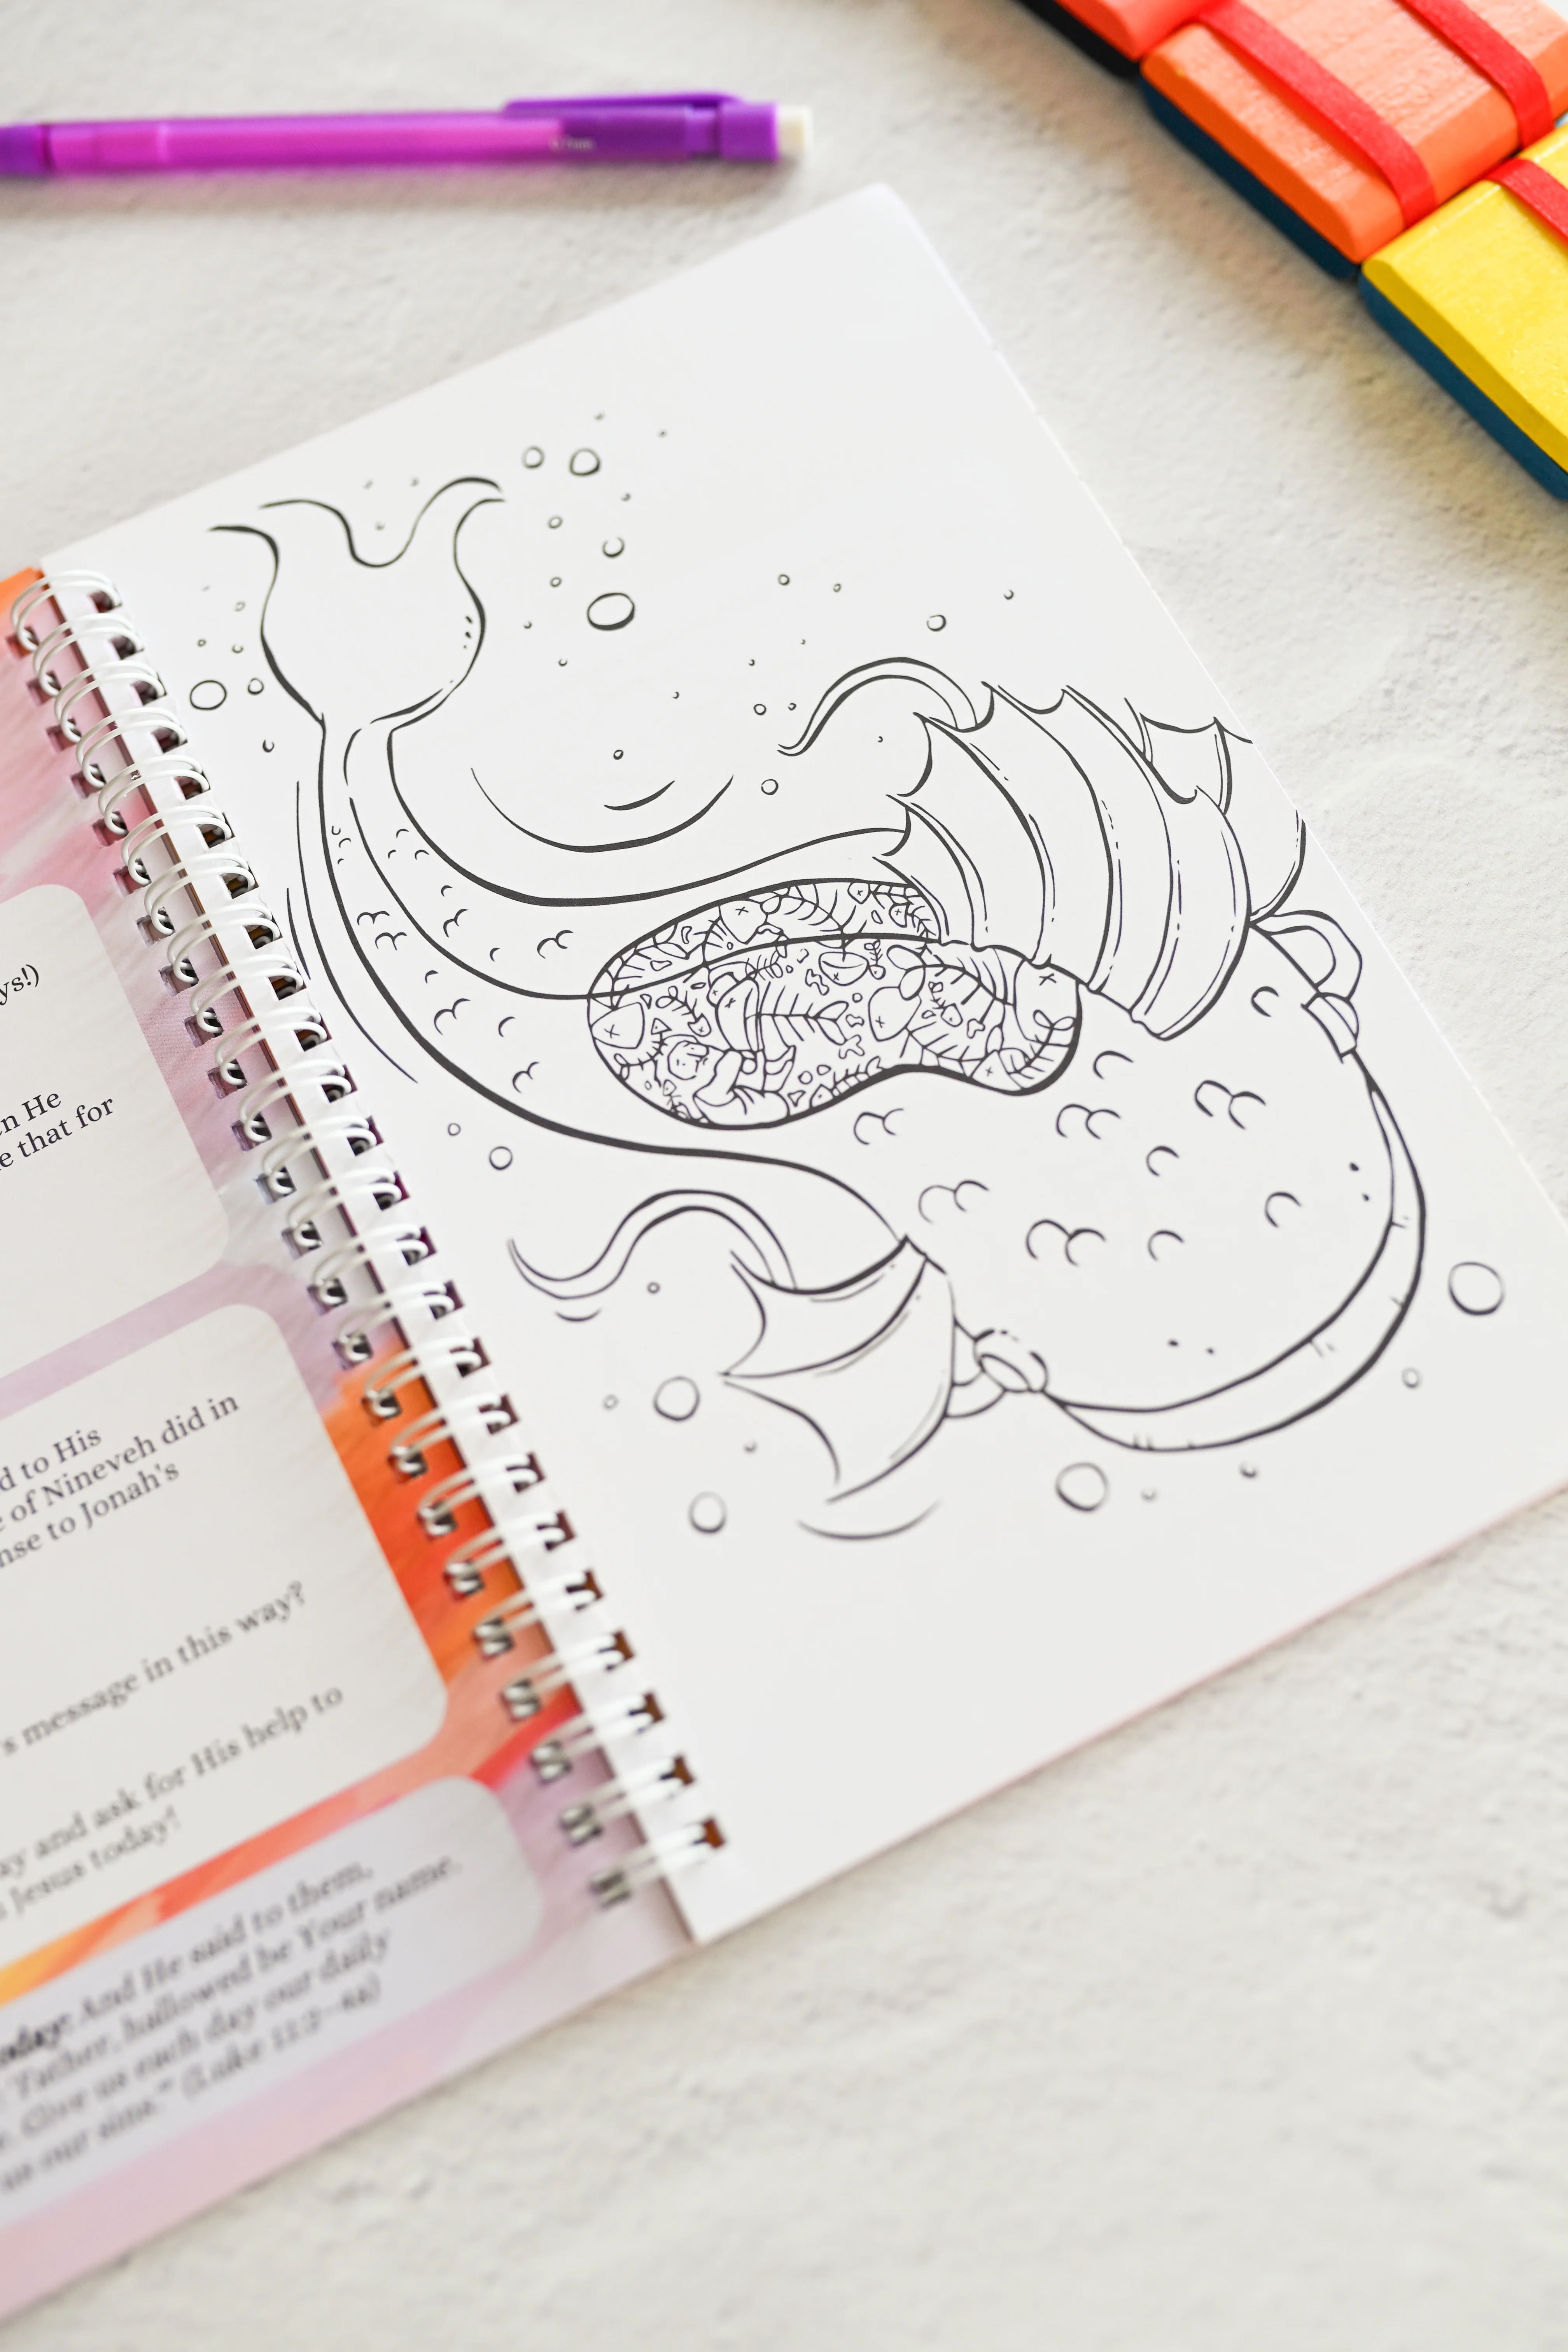 ys!)
n He
e that for
d to His
e of Nineveh did in
nse to Jonah's
's message in this way?
ay and ask for His help to
Jesus today!
oday: And He said to them,
Father, hallowed be Your name.
Give us each day our daily
us our sins.'" (Luke 11:2–4a)